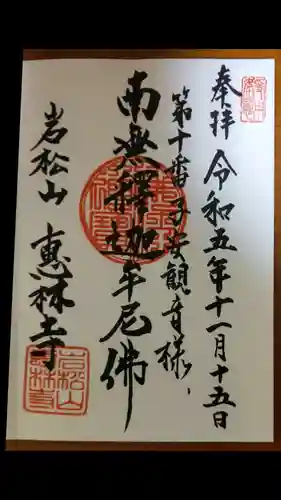 奉拝 令和五年十一月十五日
第十番子安観音様、
南無釋迦牟尼佛
岩松山 恵林寺
岩松山
恵林寺